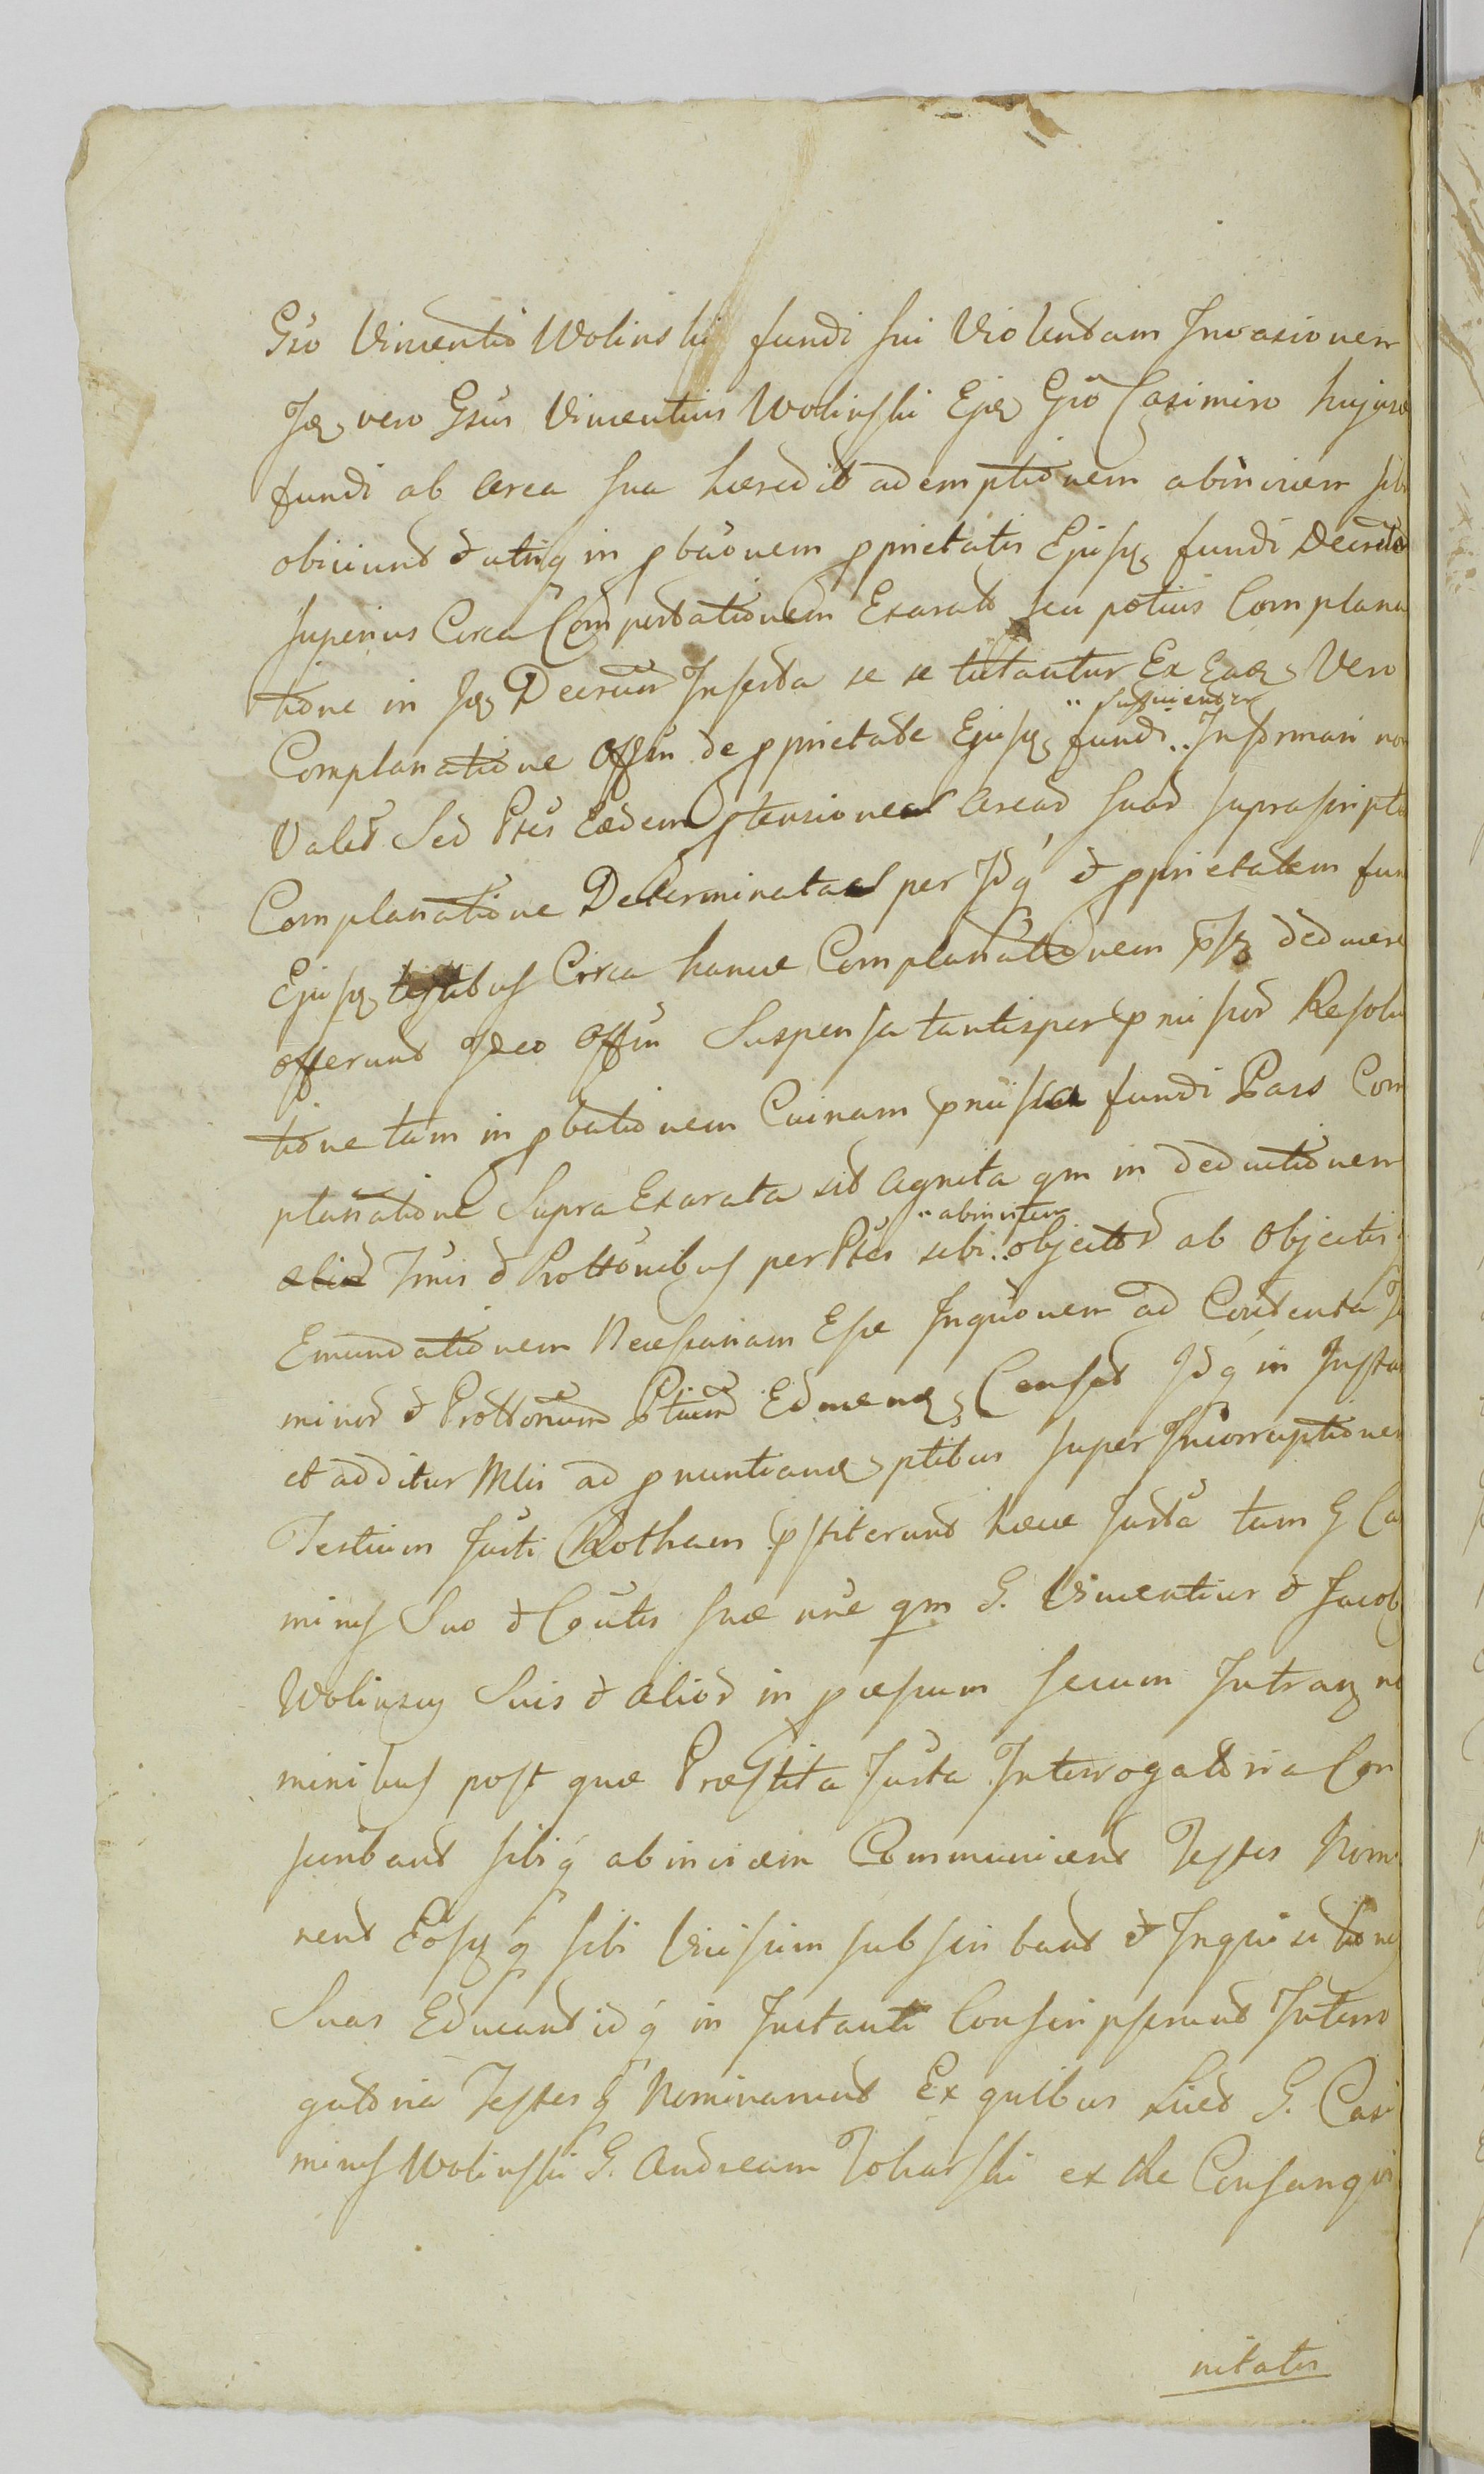 Gso Vincentio Wolinski fundi sui Violentam Invasionem
Jdz vero Gsus Vincentius Wolinski Ejdz Gso Casimiro hujusce
fundi ab area sua hæredit ademptionem abinvicem sibi
obiiciunt & utrique in pbaõnem pprietatis Ejusdz fundi Decreto
superius Circa Comportationem Exarato seu potius Complana
tione in Jdz Decreto Inserta se se tutantur Ex Eadz Vero
Complanatione Offm de pprietate Ejusdz fundi .. Informari non
.. sufficienter
Valet Sed Ptes Eædem ptensiones Arear suar suprascripta
Complanatione Determinatas per Jdq & pprietatem fun
Ejusdz testibus Circa hance Complanationem pstz deducere
offerunt Ideo Offm Suspensa tantisper pmissor Resolu
tione tam in pbationem Cuinam pmissa fundi Pars Com
planatione Supra Exarata sit agnita qm in deductionem
alior Juris & Prottonibus per Ptes sibi .. objector ab Objectis
.. abinvicem
Emundationem Necessariam Esse Inquonem ad Contenta Ter
minor & Prottonum Ptium Educend Censet Jdq in Instan
et additur Mtis ad pnuntiand ptibus super Incorruptionem
Testium Jurti Rotham pstiterunt hæce Jurta tam G Casi
mirus Suo & Coutis suæ nne qm G. Vincentius & Jacob
Wolinscy Suis & alior in pcessum secum Intranz no
minibus post quæ Præstita Jurta Interrogatoria Con
scribant sibiq abinvicem Communicent Testes Nomi
nent Eosdz q sibi Vicissim subscribant & Inquisitiones
Suas Educant idq in Instanti Conscripserunt Interro
gatoria Testes q Nominarunt Ex quibus Licet G. Casi
mirus Wolinski G. Andream Tokarski ex Re Consangvi
nitatis